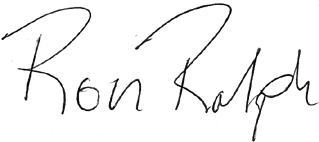 Ron Ralph